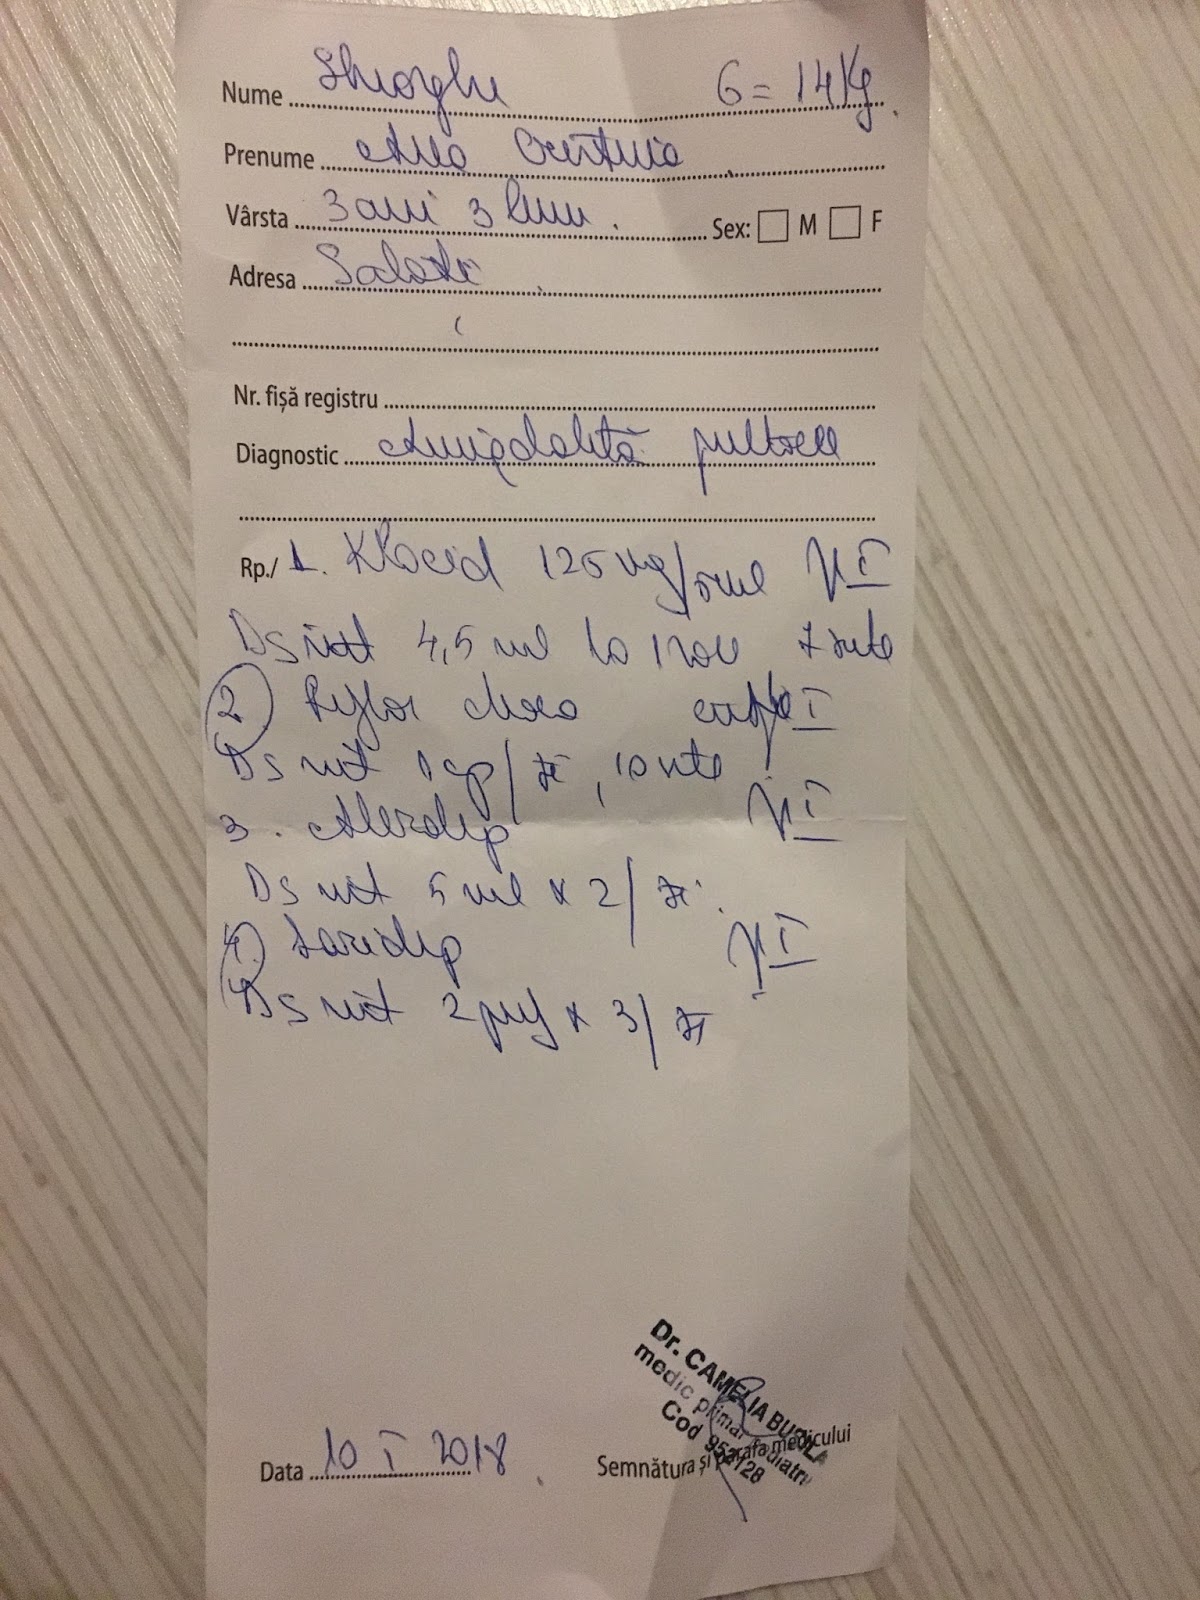 Nume Gheorghe G = 14 Kg.
Prenume Ana
Vârsta 3 ani 3 luni. Sex: M F
Adresa Galati
Nr. fișă registru
Diagnostic Amigdalită pultacee
Rp./ 1. Klacid 125 mg/5ml N I
DS int 4,5 ml la 12 ore 7 zile
2. choco cutie I
DS int 1 cp/zi, 10 zile
3. Alerdep N I
DS int 5 ml x 2/zi.
4. Laridep N I
DS int 2 puf x 3/zi
Dr. CAMELIA
medic primar pediatru
Cod 952128
Data 10 I 2018.
Semnătura și parafa medicului